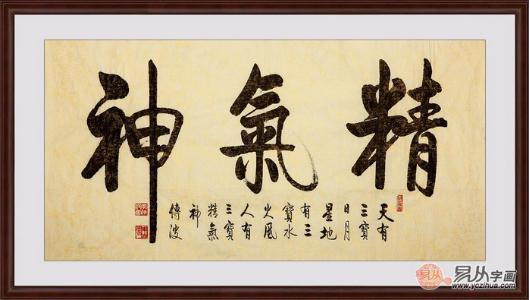 精氣神
天有
三寶
日月
星地
有三
寶水
火風
人有
三寶
精氣
神
傳波
易从字画
www.yczihua.com